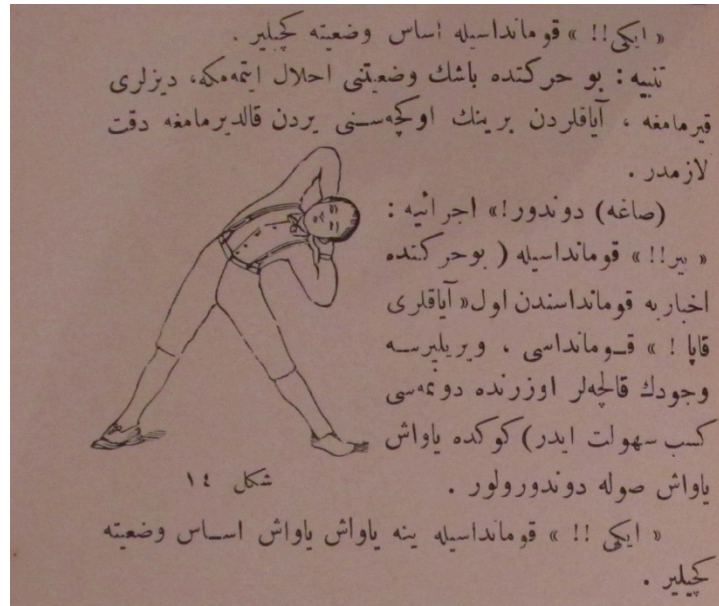 « ایکی!! » قومانداسیله اساس وضعیته کچیلیر .
تنبیه : بو حرکتده باشك وضعیتنی احلال ایتمه‌مکه، دیزلری
قیرمامغه ، آیاقلردن برینك اوکچه‌سنی یردن قالدیرمامغه دقت
لازمدر .
(صاغه) دوندور!» اجرائیه :
« بیر!! » قومانداسیله ( بوحرکتده
اخباریه قومانداسندن اول« آیاقلری
قاپا ! » قومانداسی ، ویریلیرسه
وجودك قالچه‌لر اوزرنده دونمه‌سی
کسب سهولت ایدر) کوکده یاواش
یاواش صوله دوندورولور .
شکل ١٤
« ایکی !! » قومانداسیله ینه یاواش یاواش اساس وضعیته
کچیلیر .